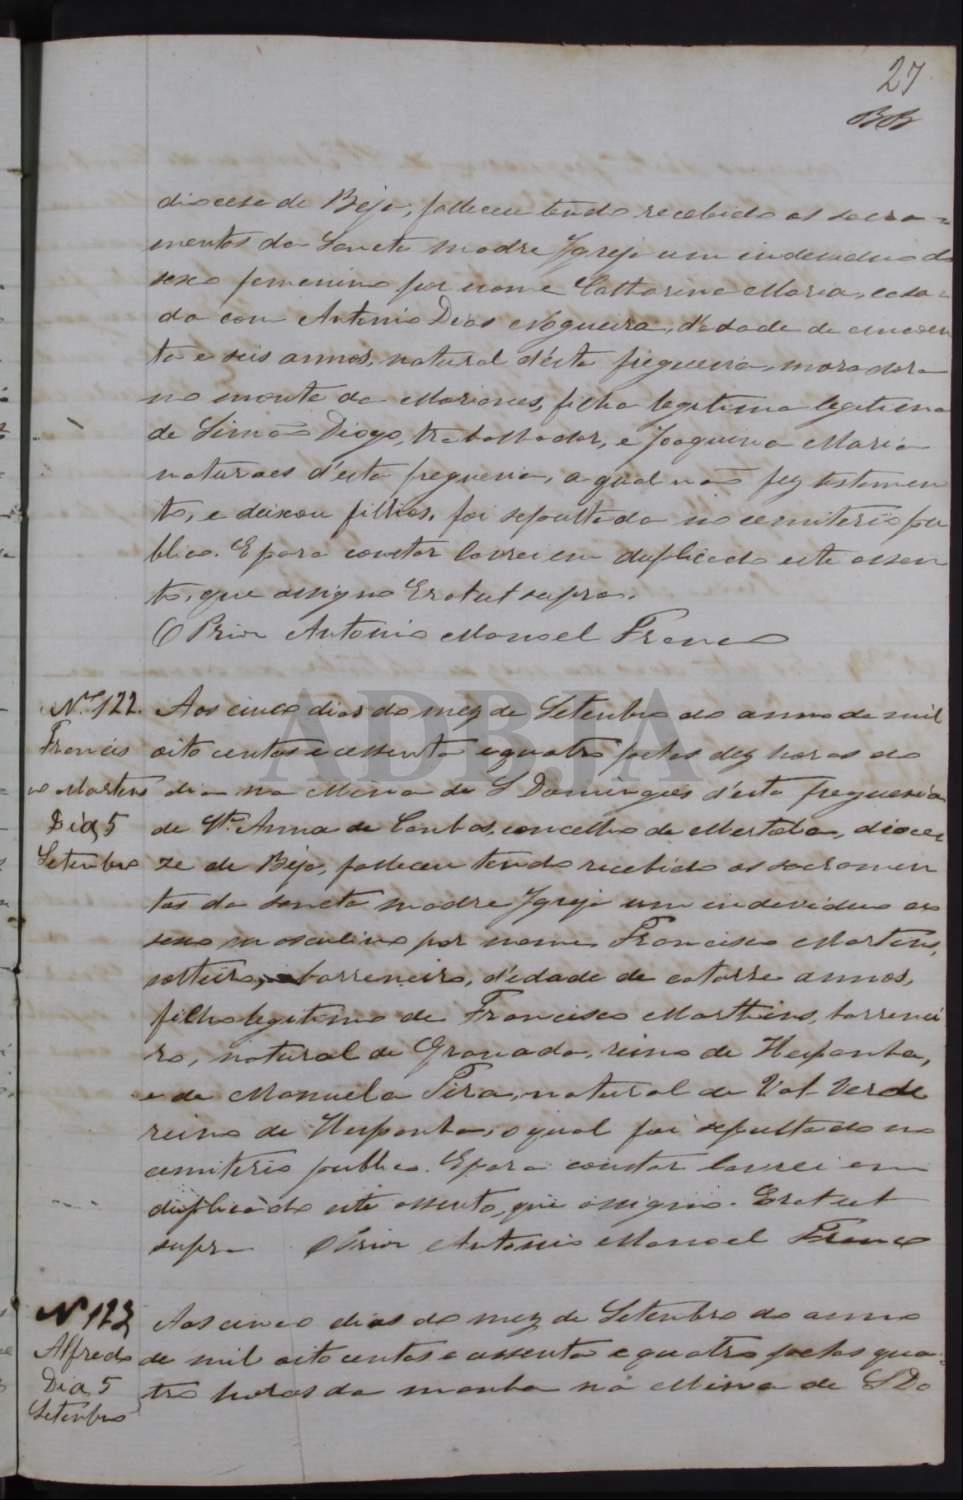 27
diocese de Beja, falleceu tendo recebido os sacra-
mentos da Sancta Madre Igreja um individuo do
sexo femenino por nome Catharina Maria, casa-
da com Antonio Dias Nogueira, d'edade de cincoen
ta e seis annos, natural d'esta freguesia, moradora
no monte da Marianes, filha legitima legitima
de Simão Diogo, trabalhador, e Joaquina Maria
naturaes d'esta freguesia, a qual não fez testamen
to, e deixou filhos, foi sepultada no cemiterio pu
blico. E para constar lavrei em duplicado este assen
to, que assigno Era ut supra.
O Prior Antonio Manoel Franco
Nº 122.
Francis
co Martins
Dia 5
Setembro
Aos cinco dias do mez de Setembro do anno de mil
oito centos e cessenta e quatro pelas dez horas do
dia na Mina de S Domingos d'esta freguesia
de Stª Anna de Cambas, concelho de Mertola, dioce
ze de Beja, falleceu tendo recebido os sacramen
tos da sancta Madre Igreja um individuo do
sexo masculino por nome Francisco Martins,
solteiro, barreneiro, d'edade de catorse annos,
filho legitimo de Francisco Marthins, barrenei
ro, natural de Granada, reino de Hespanha,
e de Manuela Pira, natural de Val Verde
reino de Hespanha, o qual foi sepultado no
cemiterio publico. E para constar lavrei em
duplicado este assento, que assigno. Era ut
supra O Prior Antonio Manoel Franco
Nº 123
Alfredo
Dia 5
Setembro
Aos cinco dias do mez de Setembro do anno
de mil oito centos e cessenta e quatro pelas qua-
tro horas da manha na Mina de S Do
ADBJA